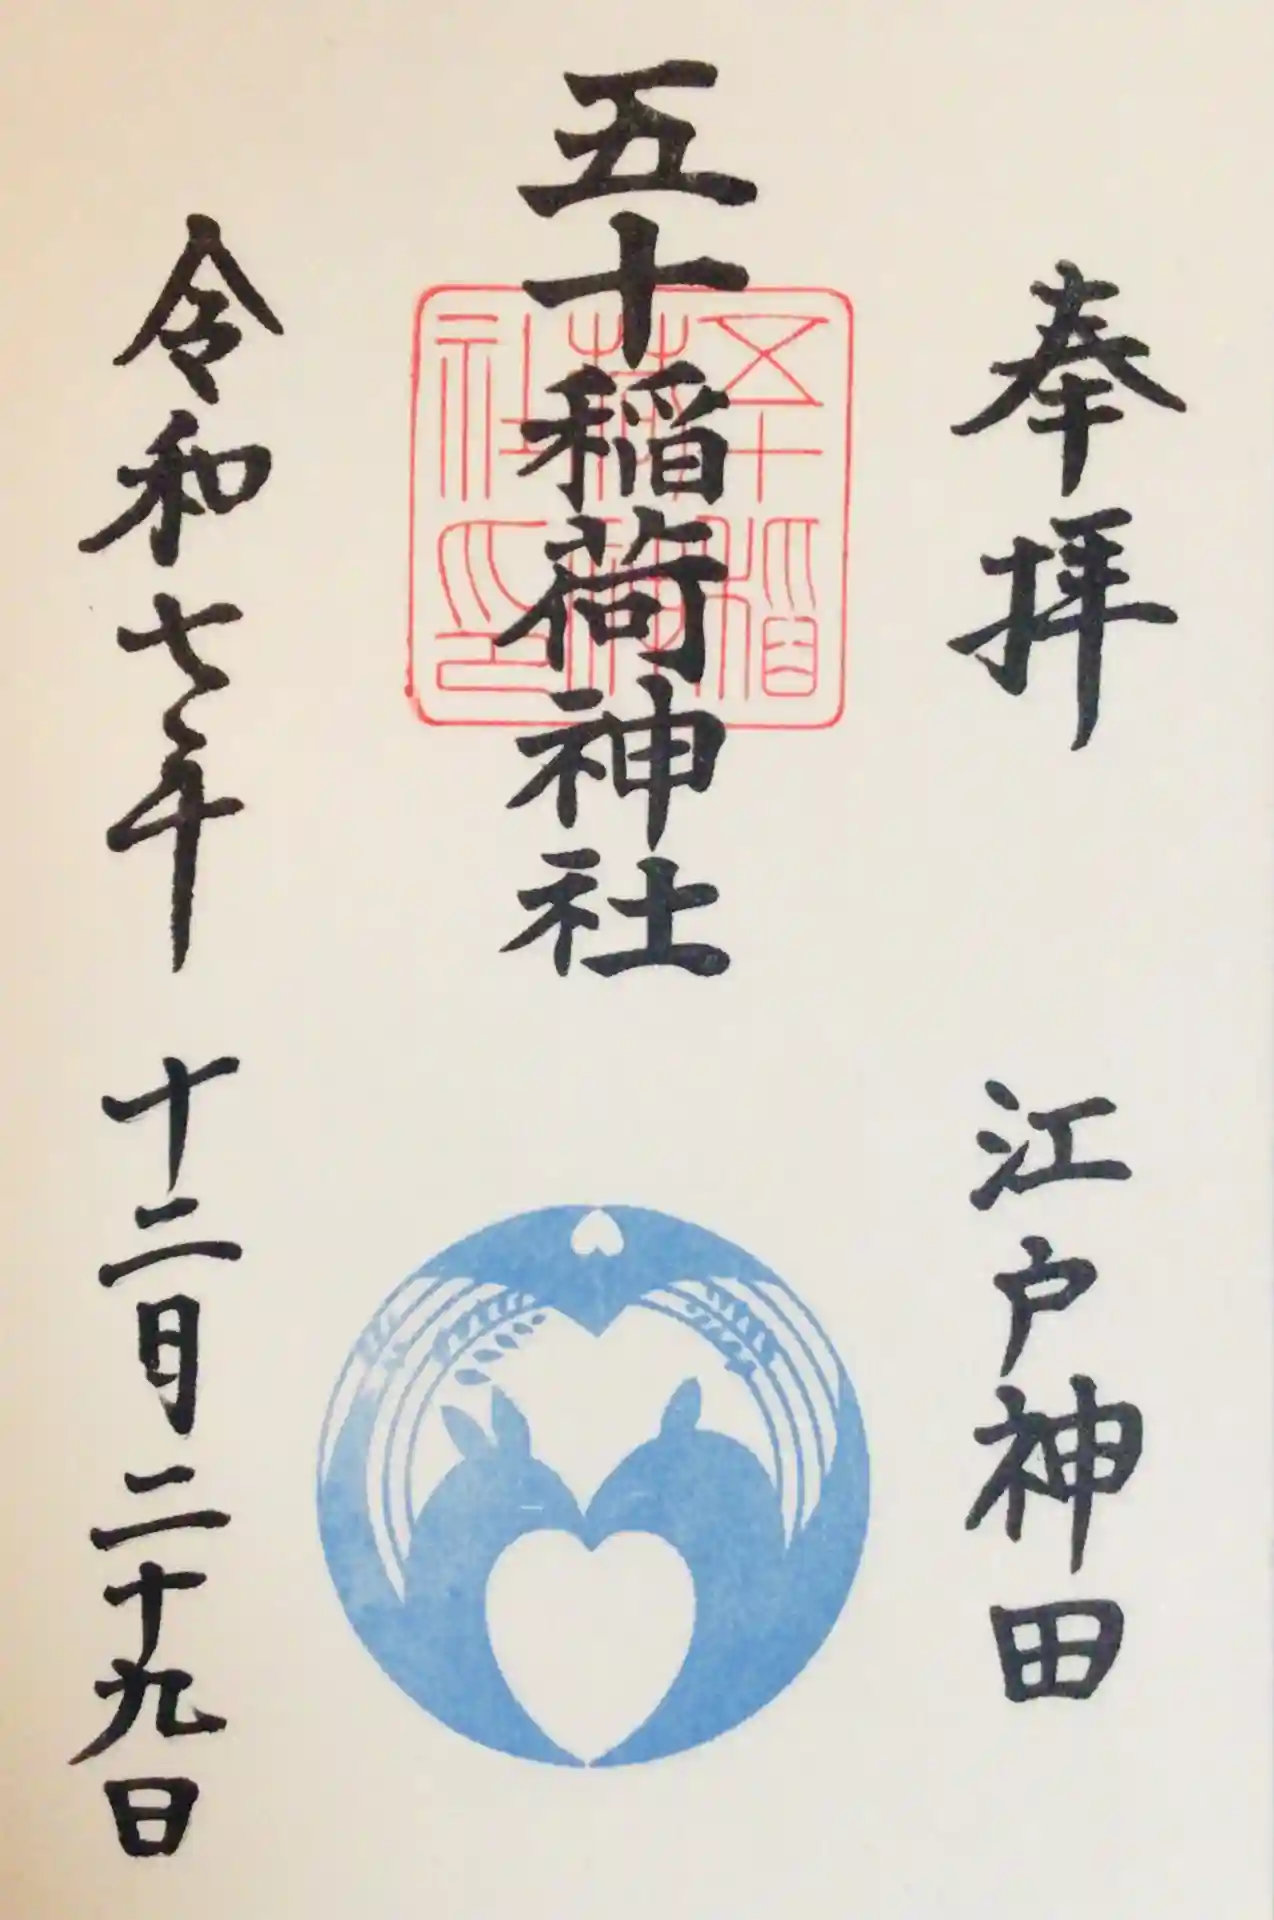 奉拝
江戸神田
五十稲荷神社
五十稲
荷神
社印
令和七年
十二月二十九日